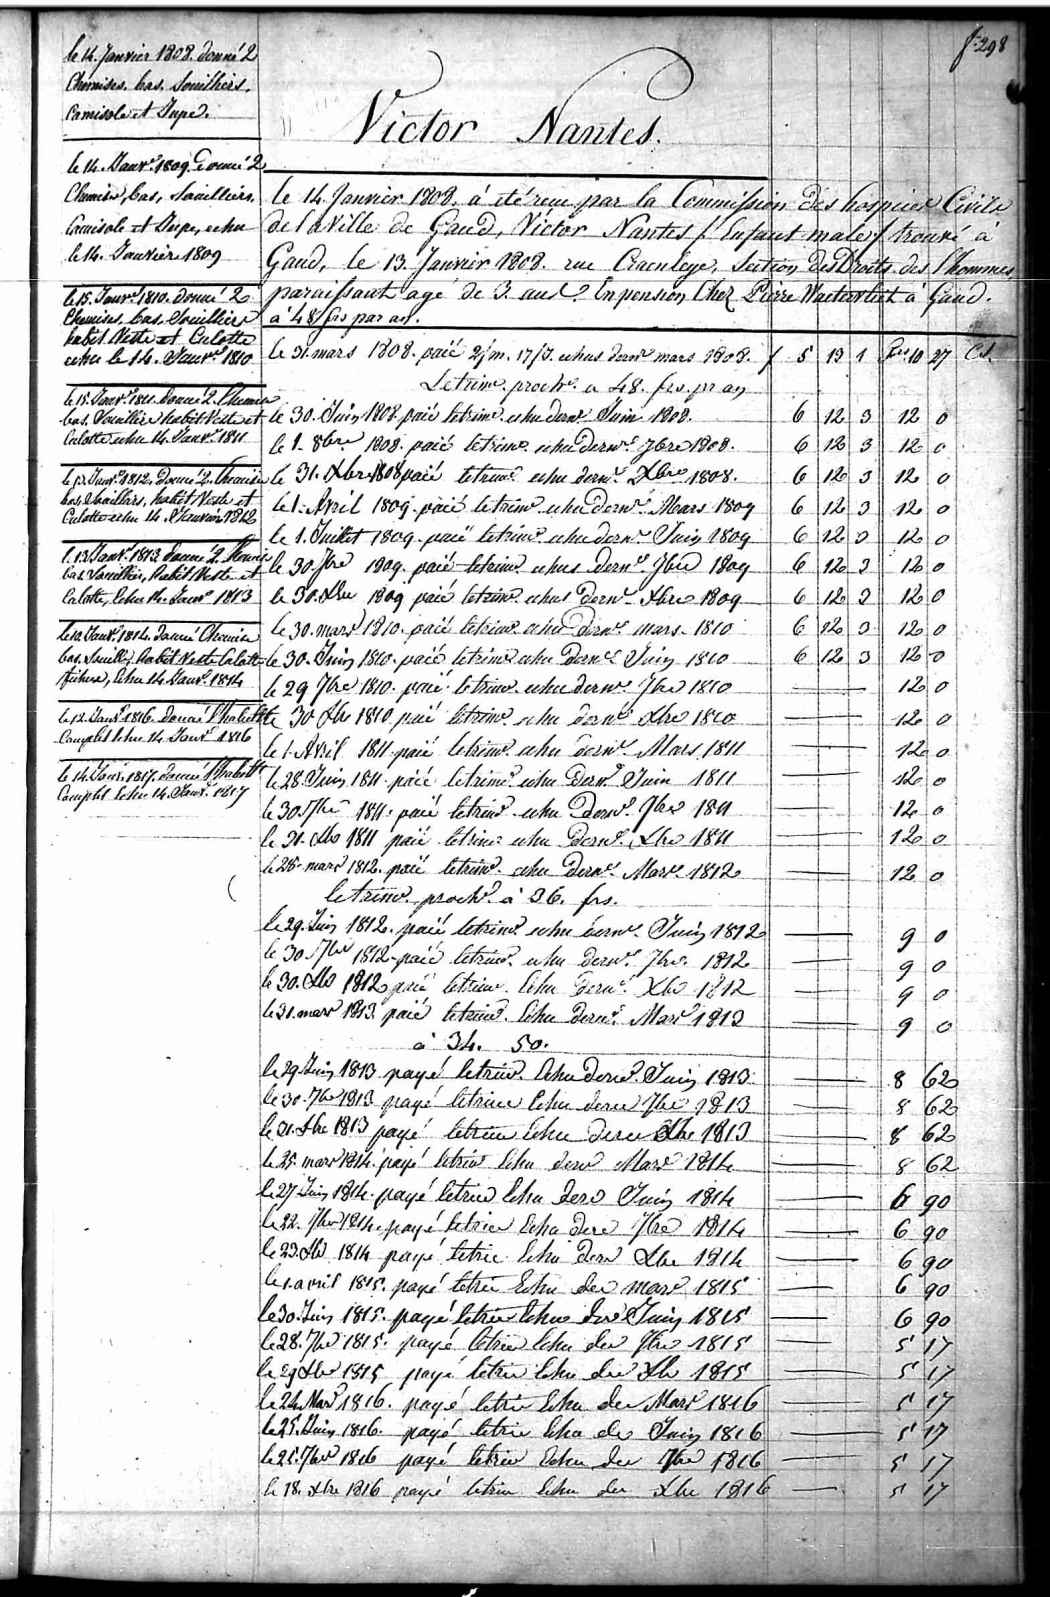 f.298
Victor Nantes.
le 14. Janvier 1808. donné 2
Chemises. bas. Souilliers.
Camisole et Jupe.
le 14. Janvr. 1809. Donné 2
Chemise, bas, Souilliers,
Camisole et Jupe, echu
le 14. Janvier 1809
le 15. Janvr. 1810. donné 2
Chemises, bas, Souilliers
habit Veste et Culotte
echu le 14. Janvr. 1810
le 15. Janvr. 1811. donné 2. Chemise
bas. Souilliers habit Veste et
Culotte echu 14. Janvr. 1811
Janvr. 1812. Donné 2. Chemise
bas Souilliers, habit Veste et
Culotte echu 14. Janvier 1812
l. 13 Janvr. 1813 donné 2. Chemise
bas. Souilliers, habit Veste et
Culotte, Echu 14. Janvr. 1813
le 12. Janvr. 1814. donné Chemise
bas. Souill, habit Veste Culotte
fichue, Echu 14. Janvr. 1814
le 12. Janvr. 1816. donné l'habillt
Complet Echu 14. Janvr. 1816
le 14. Janr. 1817. donné l'habillt
Complet Echu 14. Janvr. 1817
le 14. Janvier 1808. á eté recu par la Commission des hospices Civils
de la Ville de Gand, Victor Nantes / Enfant male / trouvé à
Gand, le 13. Janvier 1808. rue Craenlege, Section des Droits des l'hommes,
paraissant agé de 3. ans. En pension Chez Pierre Waetervliet à Gand.
à 48 frs par an.
le 31. mars 1808. paié 2/m. 17/J. echus dernr mars 1808. f 5 13 1 frs 10 27 Cs.
Letrim. prochr. a 48. frs. pr an
le 30. Juin 1808 paié letrimr. echu dernr. Juin 1808. 6 12 3 12 0
le 1. 8bre 1808. paié letrimr. echu dernr. 7bre 1808. 6 12 3 12 0
le 31. Xbre 1808 paié letrimr. echu dernr. Xbre 1808. 6 12 3 12 0
le 1. Avril 1809. paié letrimr. echu dernr. Mars 1809 6 12 3 12 0
le 1. Juillet 1809. paié letrimr. echu dernr. Juin 1809 6 12 3 12 0
le 30 7bre 1809. paié letrimr. echus dernr. 7bre 1809 6 12 3 12 0
le 30. Xbre 1809 paié letrimr. echus dernr. Xbre 1809 6 12 3 12 0
le 30. mars 1810. paié letrimr. echu dernr. mars. 1810 6 12 3 12 0
le 30. Juin 1810. paié letrimr. echu dernr. Juin 1810 6 12 3 12 0
le 29 7bre 1810. paié letrimr. echu dernr. 7bre 1810 12 0
le 30 Xbre 1810 paié letrimr. echu dernr. Xbre 1810 12 0
le 1. Avril 1811 paié letrimr. echu dernr. Mars 1811 12 0
le 28. Juin 1811. paié letrimr. echu Dernr. Juin 1811 12 0
le 30. 7bre 1811. paié letrimr. echu Dernr. 7bre 1811 12 0
le 31. Xbre 1811 paié letrimr. echu Dernr. Xbre 1811 12 0
le 28. mars 1812. paié letrimr. echu Dernr. Mars. 1812 12 0
letrimr. prochr. à 36. frs.
le 29. Juin 1812. paié letrimr. echu dernr. Juin 1812 9 0
le 30 7bre 1812 paié letrimr. echu dernr. 7bre. 1812 9 0
le 30. Xbre 1812 paié letrimr. Echu Dernr. Xbre 1812 9 0
le 31. mars 1813. paié letrimr. Echu Dernr. Mars 1813 9 0
à 34. 50.
le 29 Juin 1813 payé letrimr. Echu dernr. Juin 1813. 8 62
le 30. 7bre 1813 payé letrime Echu derne 7bre 1813 8 62
le 31. Xbre 1813 payé letrim Echu dern Xbre 1813 8 62
le 25. mars 1814. payé letrim Echu dern Mars 1814 8 62
le 27 Juin 1814. payé letrim Echu dern Juin 1814 6 90
le 22. 7bre 1814. payé letrim Echu dern 7bre 1814 6 90
le 23. Xbre 1814 payé letrim Echu dern Xbre 1814 6 90
le 1. avril 1815. payé letrim Echu der mars 1815 6 90
le 30. Juin 1815. payé letrim Echu der Juin 1815 6 90
le 28. 7bre 1815. payé letrim Echu der 7bre 1815 5 17
le 29 Xbre 1815 payé letrim Echu der Xbre 1815 5 17
le 24 Mars 1816. payé letrim Echu der Mars 1816 5 17
le 25. Juin 1816. payé letrim Echu der Juin 1816 5 17
le 25. 7bre 1816 payé letrim Echu der 7bre 1816 5 17
le 18. Xbre 1816 payé letrim Echu der Xbre 1816 5 17